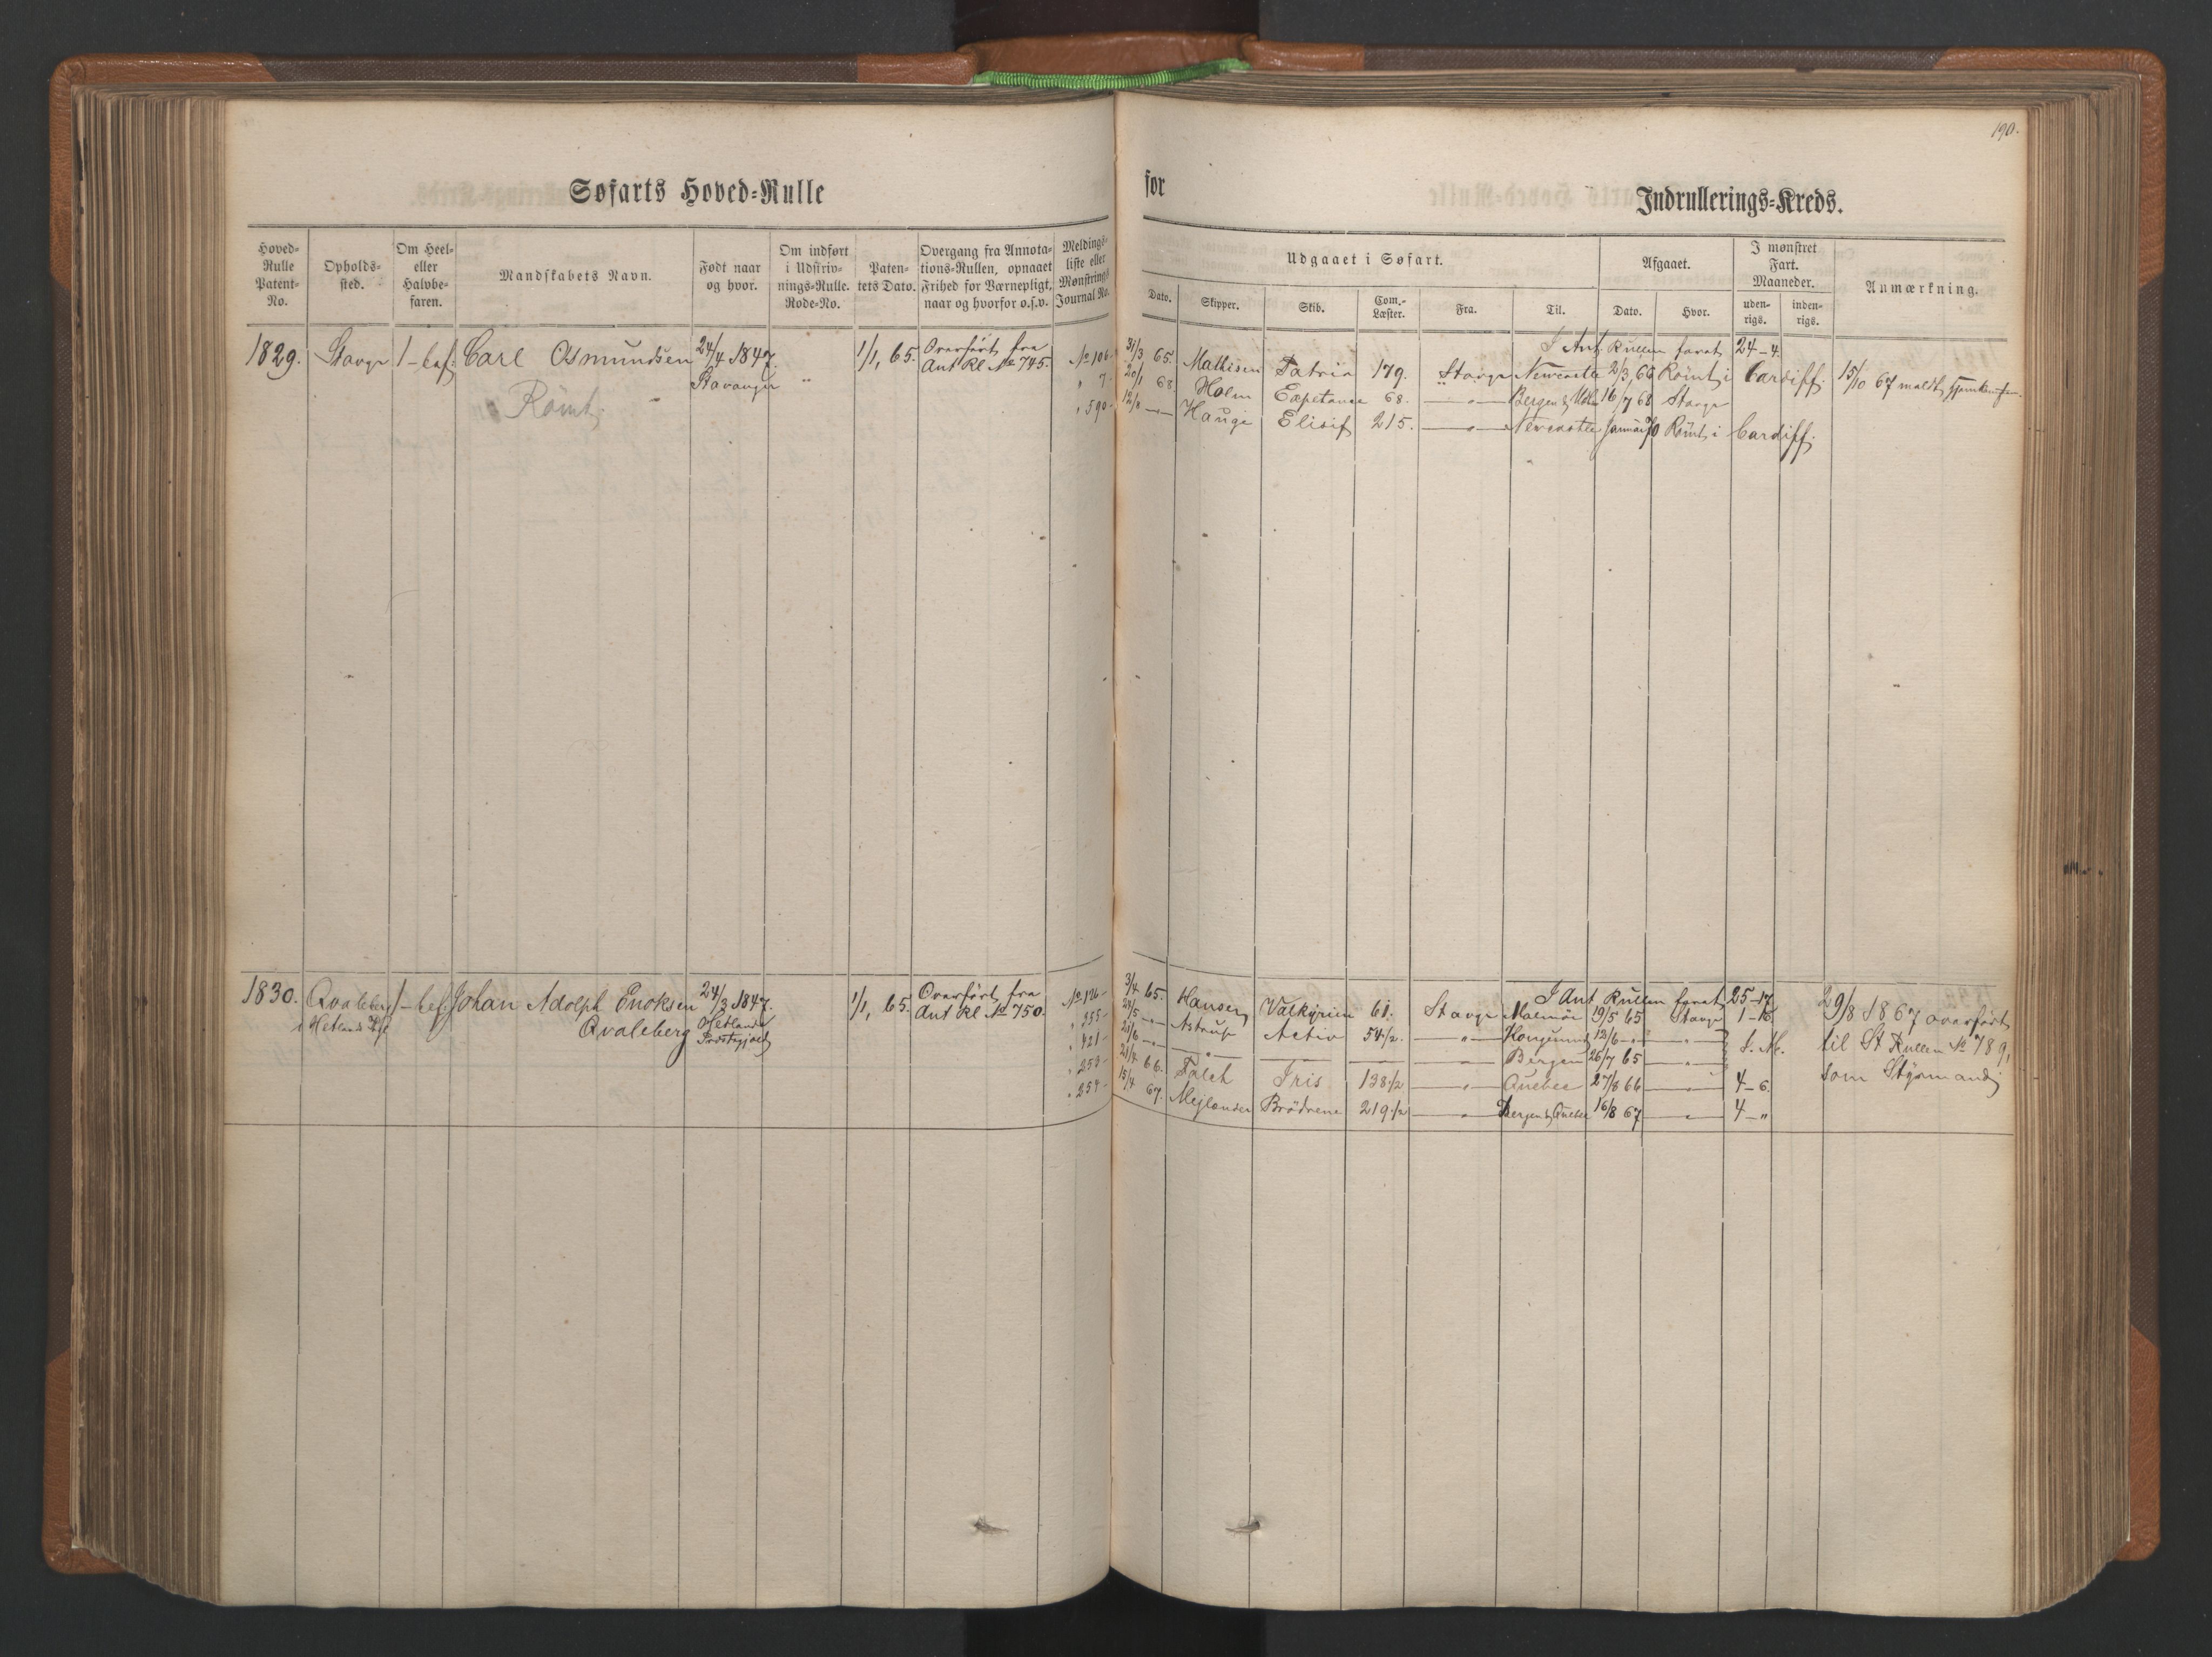 190.
Søfarts Hoved=Rulle
for
Indrullerings=Kreds.
Hoved=Rulle Patent=No.
Opholds=sted.
Om Heel= eller Halvbe=faren.
Mandskabets Navn.
Født naar og hvor.
Om indført i Udskriv=nings=Rulle. Rode=No.
Paten=tets Dato.
Overgang fra Annota=tions=Rullen, opnaaet Frihed for Værnepligt, naar og hvorfor o.s.v.
Meldings=liste eller Mønstrings Journal No.
Udgaaet i Søfart.
Dato. Skipper. Skib. Com.=Læster. Fra. Til.
Afgaaet.
Dato. Hvor.
I mønstret Fart. Maaneder.
uden=rigs. inden=rigs.
Anmærkning.
1829. Stavgr 1-bef: Carl Osmundsen 24/4 1847. 1/1, 65. Overført fra
Stavanger " Ant Rl No 745.
Römt
I Ant Rullen faret 24-4.
No 106. 31/3 65. Mathisen Patria 179. Stavgr Newcastle 2/3, 66 Römt i Cardiff. 15/10 67 meldt hjemkommen.
" 7- 20/1 68 Holm Expetance 68. —"— Bergen & 16/7 68 Stavgr
" 590- 12/8 — Hauge Elisif 215. —"— Newcastle Januar 70 Römt i Cardiff.
1830. Qvaleberg 1-bef: Johan Adolph Enoksen 24/3 1847. 1/1, 65. Overført fra
i Hetlands Qvaleberg Hetlands Ant Rl No 750.
Præstegjæld
I Ant Rullen faret 25-17.
No 126- 3/4 65. Hansen Valkyrien 61. Stavgr Malmöe 19/5 65 Stavgr 1-16.
" 355- 24/5 — Astrup Activ 54 1/2. —"— 12/6 —"—
" 421- —"— — — —"— Bergen 26/7 65 —"—
" 253- 21/4 66. Falch Iris 138 1/2 —"— Quebec 27/8 66 —"— 4-6.
" 254- 15/4 67. Mejlænder Brödrene 219 1/2 —"— Bergen & Quebec 16/8 67 —"— 4-"
29/8 1867 overført
til St Rullen No 789,
som Styrmand